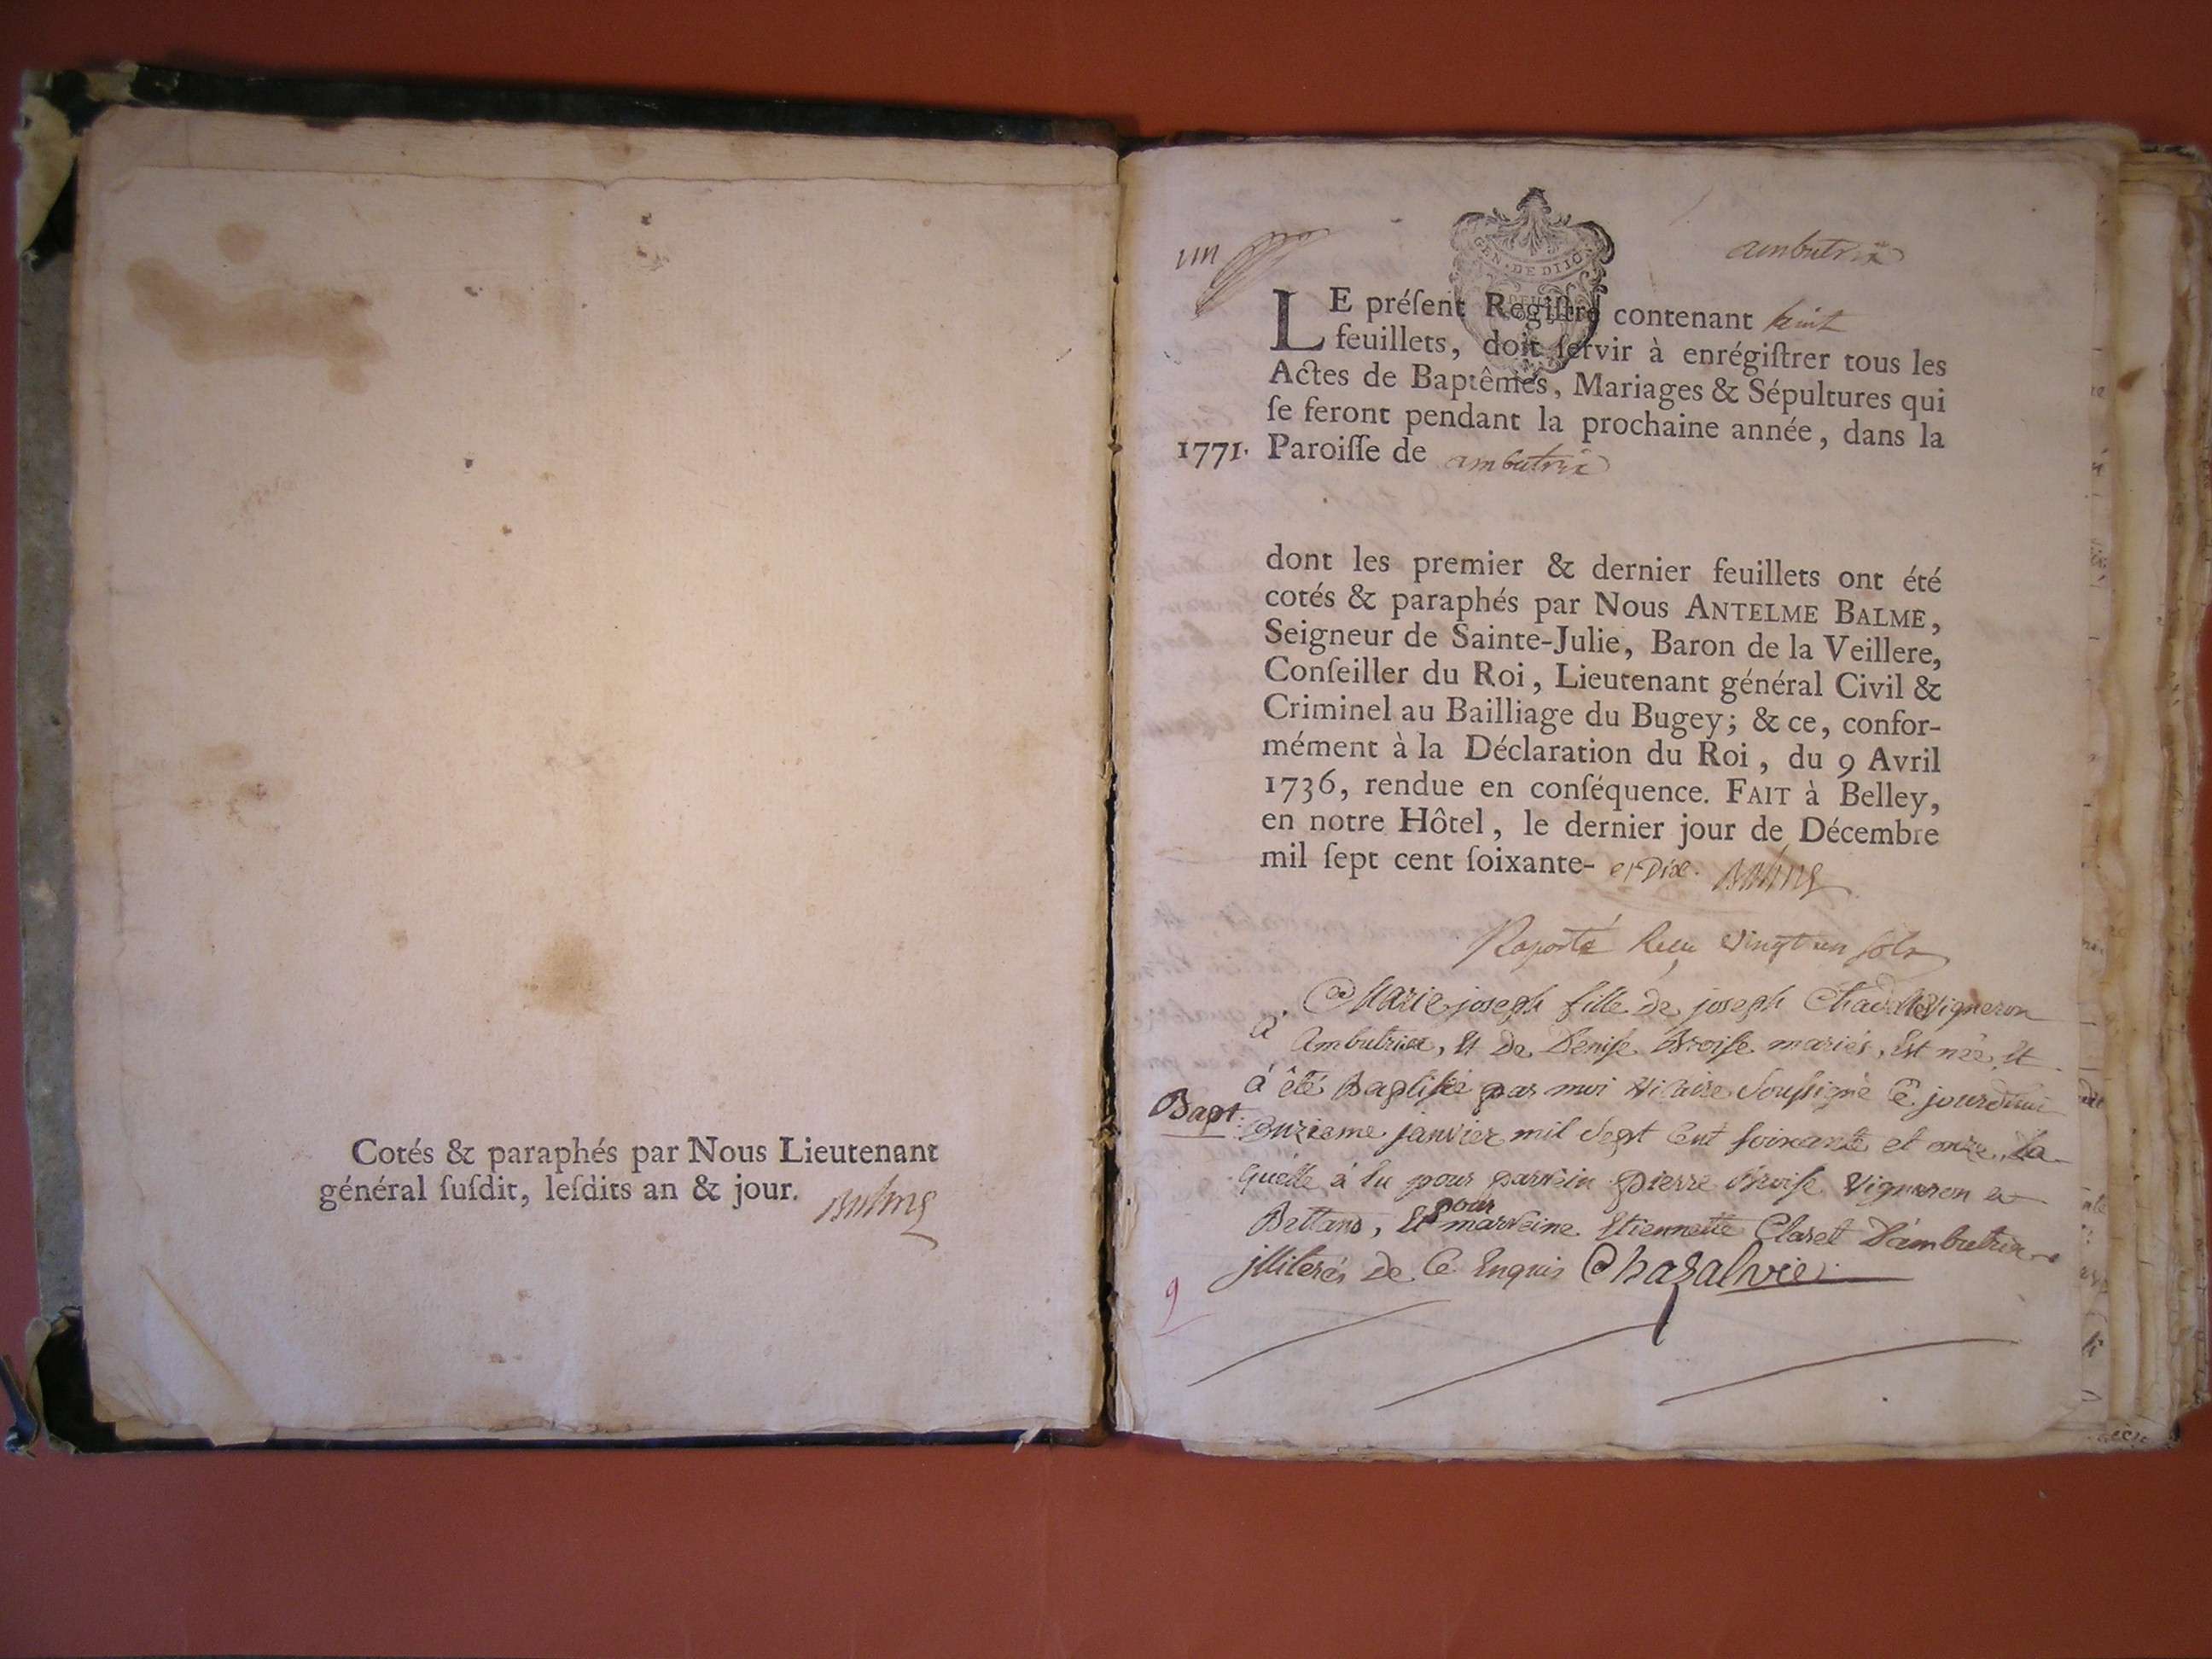 Cotés & paraphés par Nous Lieutenant
général ſuſdit, leſdits an & jour. Balme
un
ambutrix
GEN. DE DIJON
LE préſent Regiſtre contenant huit
feuillets, doit ſervir à enrégiſtrer tous les
Actes de Baptêmes, Mariages & Sépultures qui
ſe feront pendant la prochaine année, dans la
1771. Paroiſſe de ambutrix
dont les premier & dernier feuillets ont été
cotés & paraphés par Nous ANTELME BALME,
Seigneur de Sainte-Julie, Baron de la Veillere,
Conſeiller du Roi, Lieutenant général Civil &
Criminel au Bailliage du Bugey; & ce, confor-
mément à la Déclaration du Roi, du 9 Avril
1736, rendue en conſéquence. FAIT à Belley,
en notre Hôtel, le dernier jour de Décembre
mil ſept cent ſoixante- et Dix. Balme
Raporté Reçu vingt un sols
Marie joseph fille de joseph vigneron
à Ambutrix, Et de Denise Broise mariés, Est née, Et
à été Baptisée par moi vicaire Soussigné Ce jourdhui
Bapt. onzieme janvier mil Sept Cent soixante et onze, La
quelle à Eu pour parrein pierre Broise vigneron a
Bettand, Et pour marreine Etiennette Claret D'ambutrix
jlliterés de Ce Enquis Chazalvie